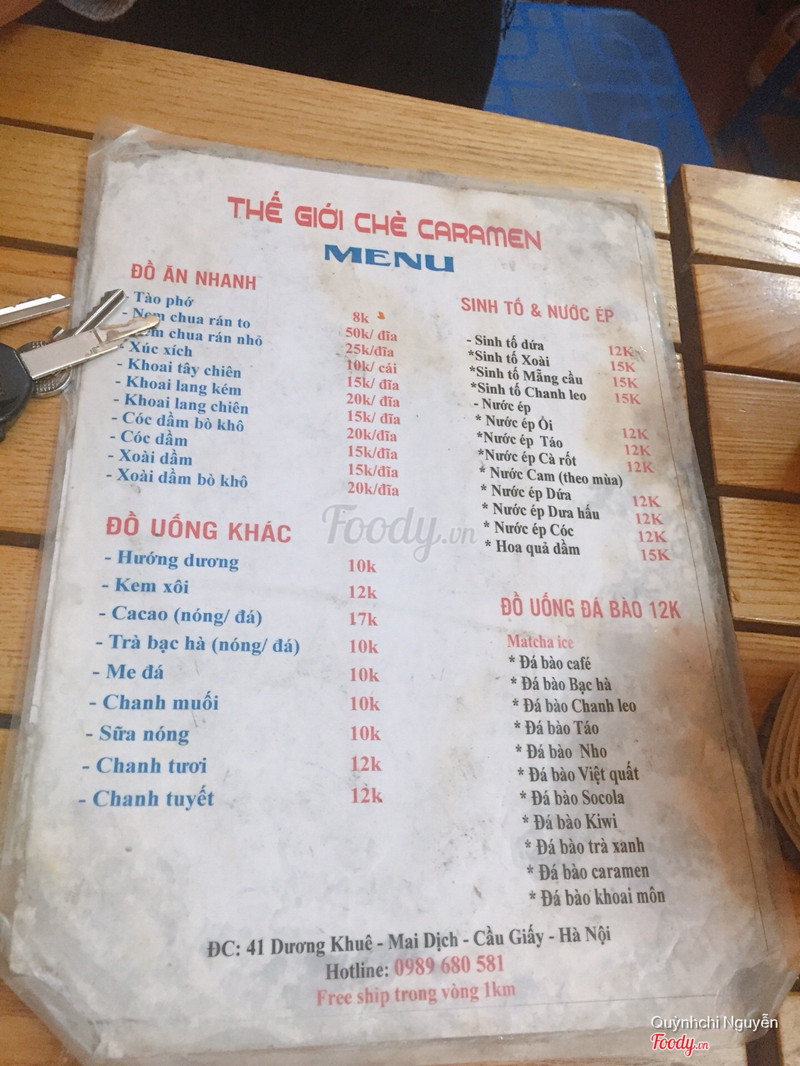 THẾ GIỚI CHÈ CARAMEN
MENU
ĐỒ ĂN NHANH
- Tào phớ 8k
- Nem chua rán to 50k/ đĩa
chua rán nhỏ 25k/đĩa
- Xúc xích 10k/ cái
- Khoai tây chiên 15k/ đĩa
- Khoai lang kém 20k/ đĩa
- Khoai lang chiên 15k/ đĩa
- Cóc dầm bò khô 20k/đĩa
- Cóc dầm 15k/đĩa
- Xoài dầm 15k/đĩa
- Xoài dầm bò khô 20k/đĩa
ĐỒ UỐNG KHÁC
- Hướng dương 10k
- Kem xôi 12k
- Cacao (nóng/ đá) 17k
- Trà bạc hà (nóng/ đá) 10k
- Me đá 10k
- Chanh muối 10k
- Sữa nóng 10k
- Chanh tươi 12k
- Chanh tuyết 12k
SINH TỐ & NƯỚC ÉP
- Sinh tố dứa 12K
*Sinh tố Xoài 15K
*Sinh tố Mẵng cầu 15K
*Sinh tố Chanh leo 15K
- Nước ép
* Nước ép Ổi 12K
*Nước ép Táo 12K
*Nước ép Cà rốt 12K
* Nước Cam (theo mùa)
* Nước ép Dứa 12K
* Nước ép Dưa hấu 12K
* Nước ép Cóc 12K
* Hoa quả dầm 15K
ĐỒ UỐNG ĐÁ BÀO 12K
Matcha ice
* Đá bào café
* Đá bào Bạc hà
* Đá bào Chanh leo
* Đá bào Táo
* Đá bào Nho
* Đá bào Việt quất
* Đá bào Socola
* Đá bào Kiwi
* Đá bào trà xanh
* Đá bào caramen
* Đá bào khoai môn
ĐC: 41 Dương Khuê - Mai Dịch - Cầu Giấy - Hà Nội
Hotline: 0989 680 581
Free ship trong vòng 1km
Foody.vn
Quỳnhchi Nguyễn
Foody.vn